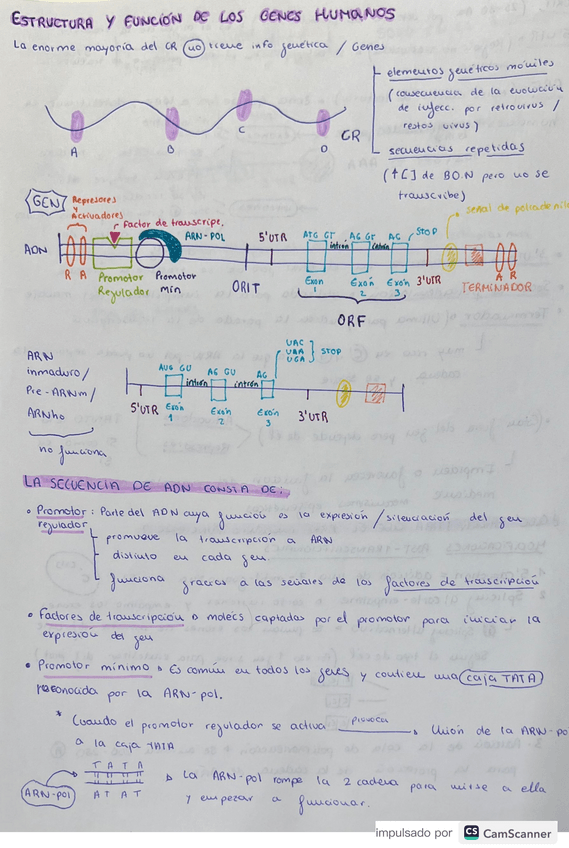 ESTRUCTURA Y FUNCIÓN DE LOS GENES HUMANOS
La enorme mayoría del CR no tiene info genética / Genes
elementos genéticos móviles
(consecuencia de la evolución
de infecc. por retrovirus /
restos virus)
secuencias repetidas
(↑[] de B.O.N pero no se
transcribe)
A B C D CR
GEN
Represores
y
Activadores
Factor de transcripc.
ARN-POL
5'UTR
ATG GT AG GT AG STOP
señal de poliadenila
ADN
intrón intrón
R A
Promotor
Regulador
Promotor
mín
ORIT
Exón
1
Exón
2
Exón
3
3'UTR
TERMINADOR
A R
ORF
ARN
inmaduro/
Pre-ARNm/
ARNhn
no funciona
UAC
UAA
UGA
STOP
AUG GU AG GU AG
intrón intrón
5'UTR
Exón
1
Exón
2
Exón
3
3'UTR
LA SECUENCIA DE ADN CONSTA DE:
• Promotor : Parte del ADN cuya función es la expresión/silenciación del gen
regulador
promueve la transcripción a ARN
distinto en cada gen.
funciona gracias a las señales de los factores de transcripción
• Factores de transcripción molecs captadas por el promotor para iniciar la
expresión del gen
• Promotor mínimo Es común en todos los genes y contiene una caja TATA
reconocida por la ARN-pol.
* Cuando el promotor regulador se activa provoca Unión de la ARN-po
a la caja TATA
T A T A
ARN-pol
A T A T
La ARN-pol rompe la 2 cadena para unirse a ella
y empezar a funcionar.
impulsado por CS CamScanner